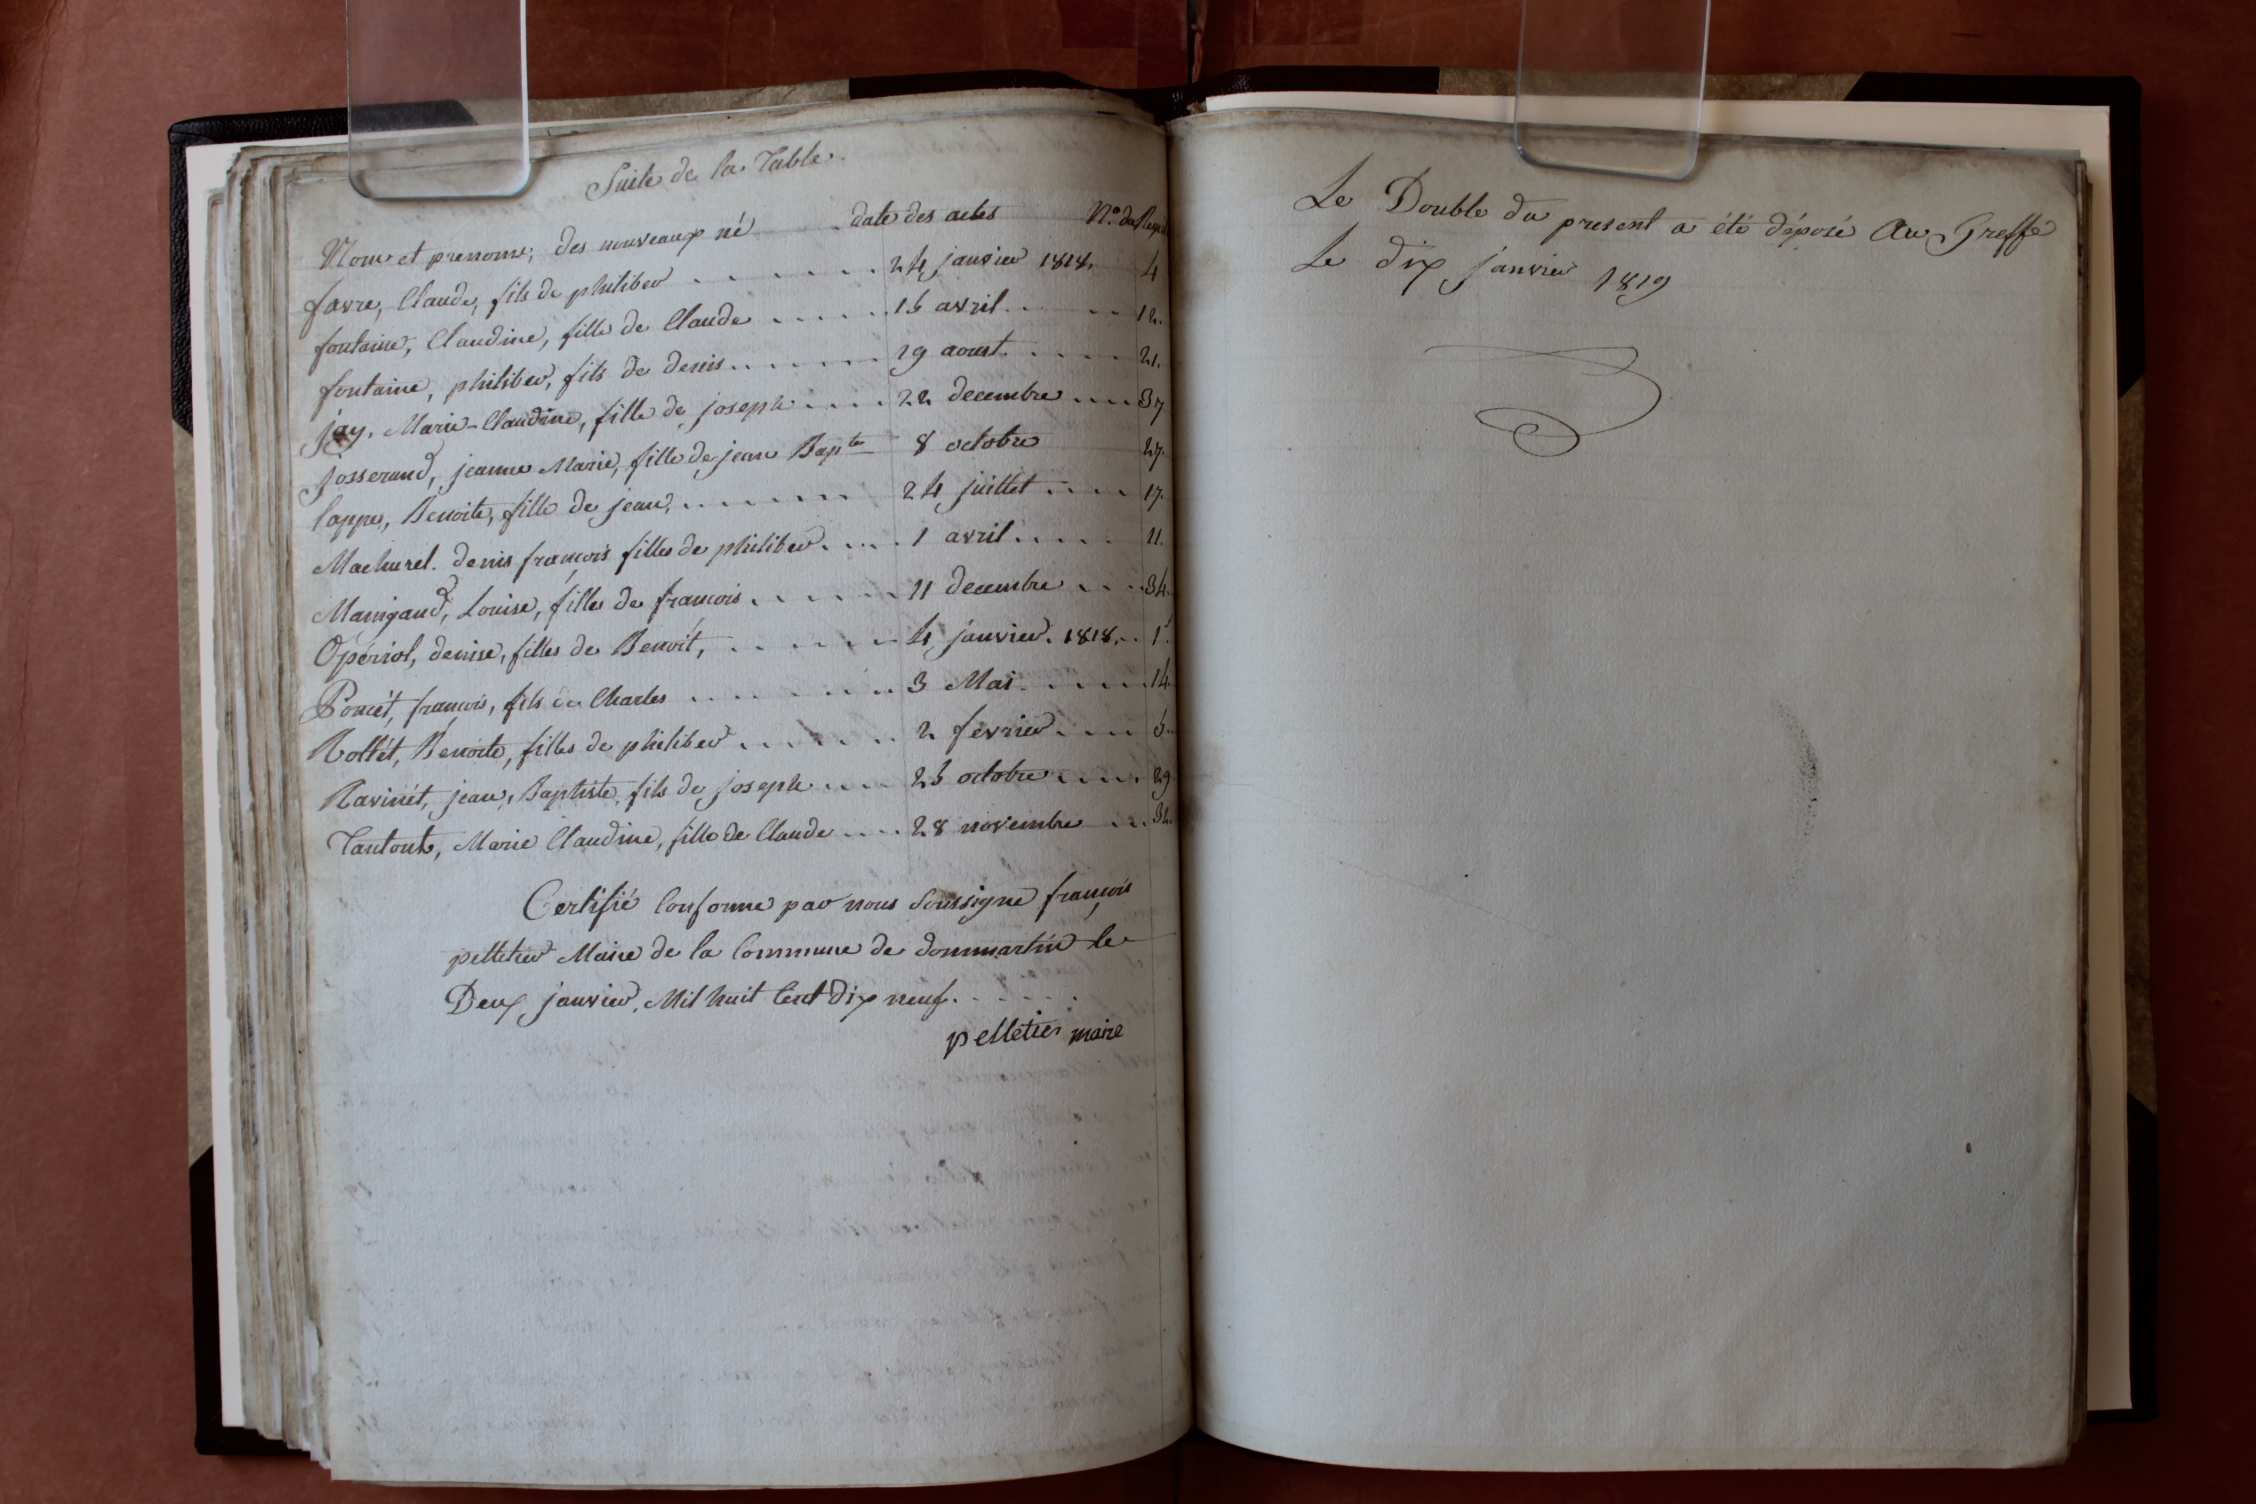 Suite de la Table.
Nom et prenoms, des nouveaux né date des actes N.o du
favre, Claude, fils de philiber . . . . . . . 24 janvier 1818. 4
fontaine, Claudine, fille de Claude . . . . . 15 avril . . . . 12.
fontaine, philiber, fils de denis . . . . . . 19 aoust . . . . 21.
jay, Marie-Claudine, fille de joseph . . . . 22 decembre . . . 37
josserand, jeanne Marie, fille de jean Bapte 8 octobre 27.
lappe, Benoite, fille de jean, . . . . . . . 24 juillet . . . . 17.
Machurel. denis françois filles de philiber . . . . 1 avril . . . . 11.
Maingaud, Louise, filles de françois . . . . . . 11 decembre . . . 34.
Opériol, denise, filles de Benoit, . . . . . . 4 janvier. 1818. . 1
Poncét, françois, fils de Charles . . . . . . . 3 Mai . . . . . 14.
Rottét, Benoite, filles de philiber . . . . . . 2 fevrier . . . .
Ravinét, jean, Baptiste, fils de joseph . . . . 25 octobre . . . . 29
Tantout, Marie Claudine, fille de Claude . . . . 28 novembre . . . 32.
Certifié Conforme par nous Soussigne françois
pelletier Maire de la Commune de dommartin le
Deux janvier, Mil huit Cent Dix neuf. . . . . .
pelletier maire
Le Double du present a été déposé Au Greffe
Le dix janvier 1819